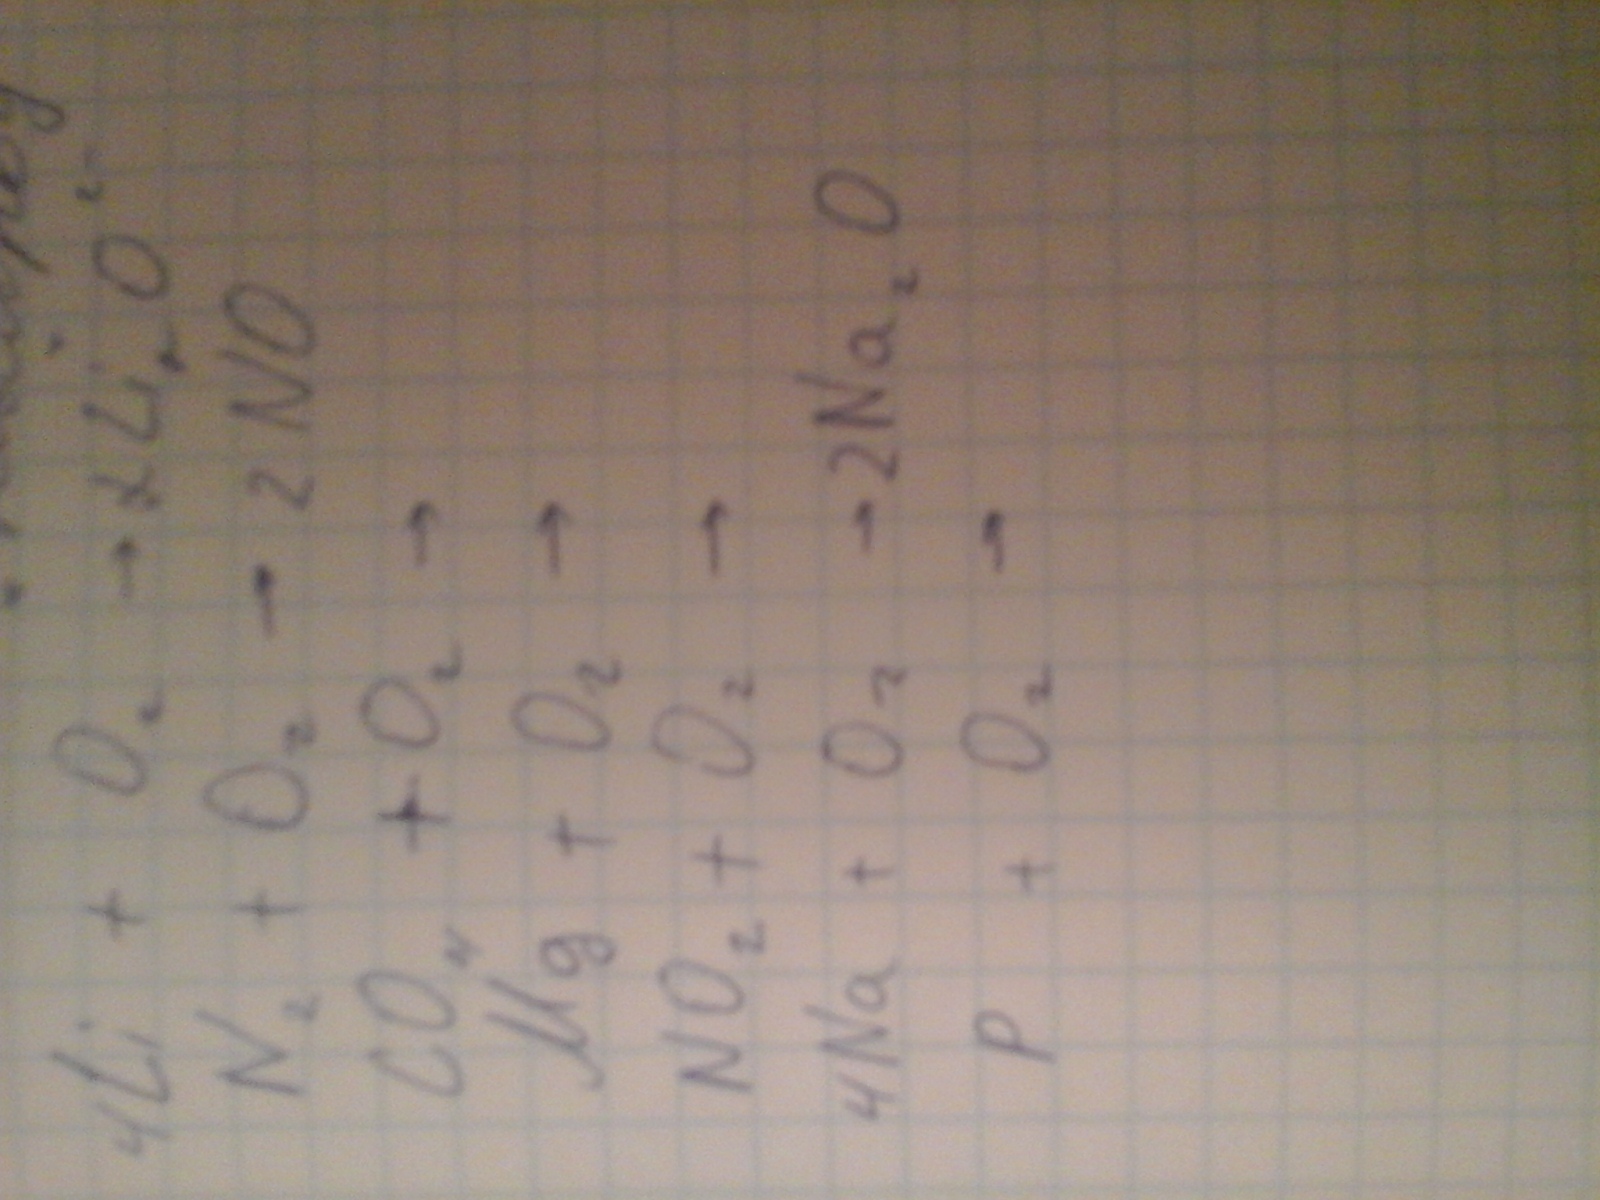 4Li + O₂ → 2Li₂O₂
N₂ + O₂ → 2NO
CO₂ + O₂ →
Mg + O₂ →
NO₂ + O₂ →
4Na + O₂ → 2Na₂O
P + O₂ →